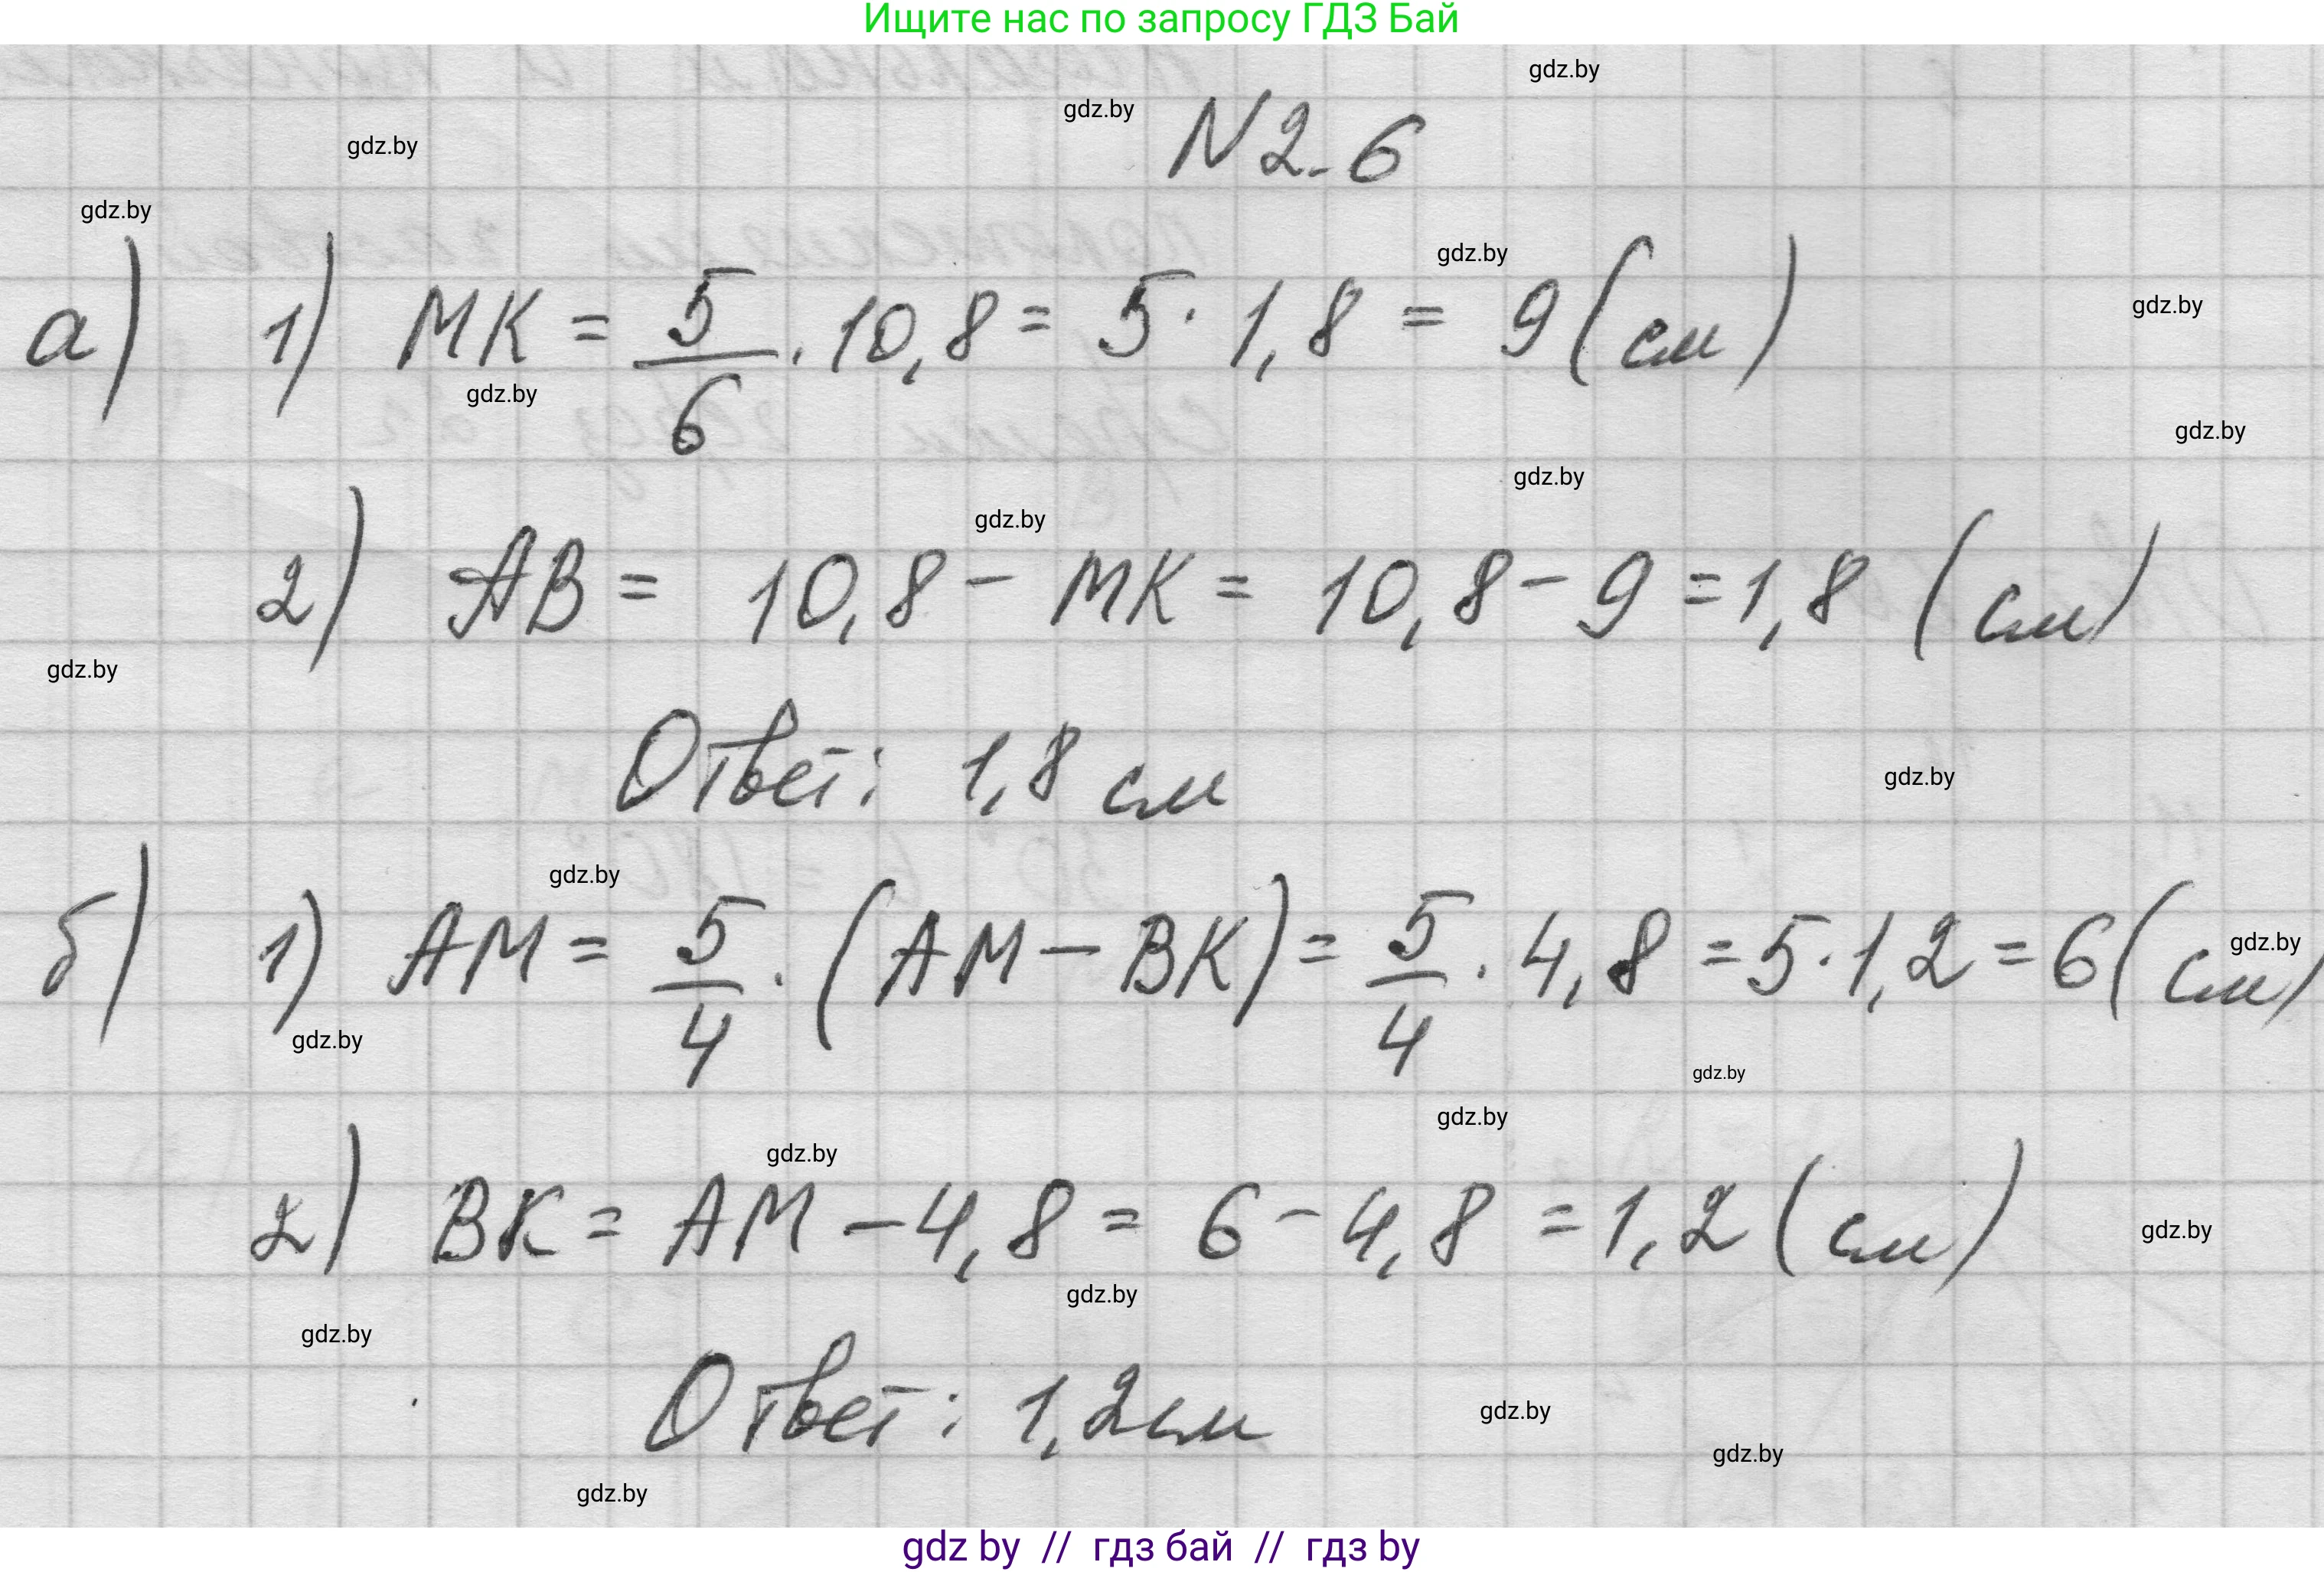 Ищите нас по запросу ГДЗ Бай
gdz.by
gdz.by
N2.6
gdz.by
gdz.by
gdz.by
а) 1) МК = 5/6 · 10,8 = 5 · 1,8 = 9 (см)
gdz.by
gdz.by
gdz.by
gdz.by
gdz.by
2) АВ = 10,8 - МК = 10,8 - 9 = 1,8 (см)
gdz.by
Ответ: 1,8 см
gdz.by
gdz.by
б) 1) АМ = 5/4 · (АМ - ВК) = 5/4 · 4,8 = 5 · 1,2 = 6 (см)
gdz.by
gdz.by
gdz.by
gdz.by
gdz.by
2) ВК = АМ - 4,8 = 6 - 4,8 = 1,2 (см)
gdz.by
gdz.by
gdz.by
Ответ: 1,2 см
gdz.by
gdz.by
gdz.by
gdz by // гдз бай // гдз by